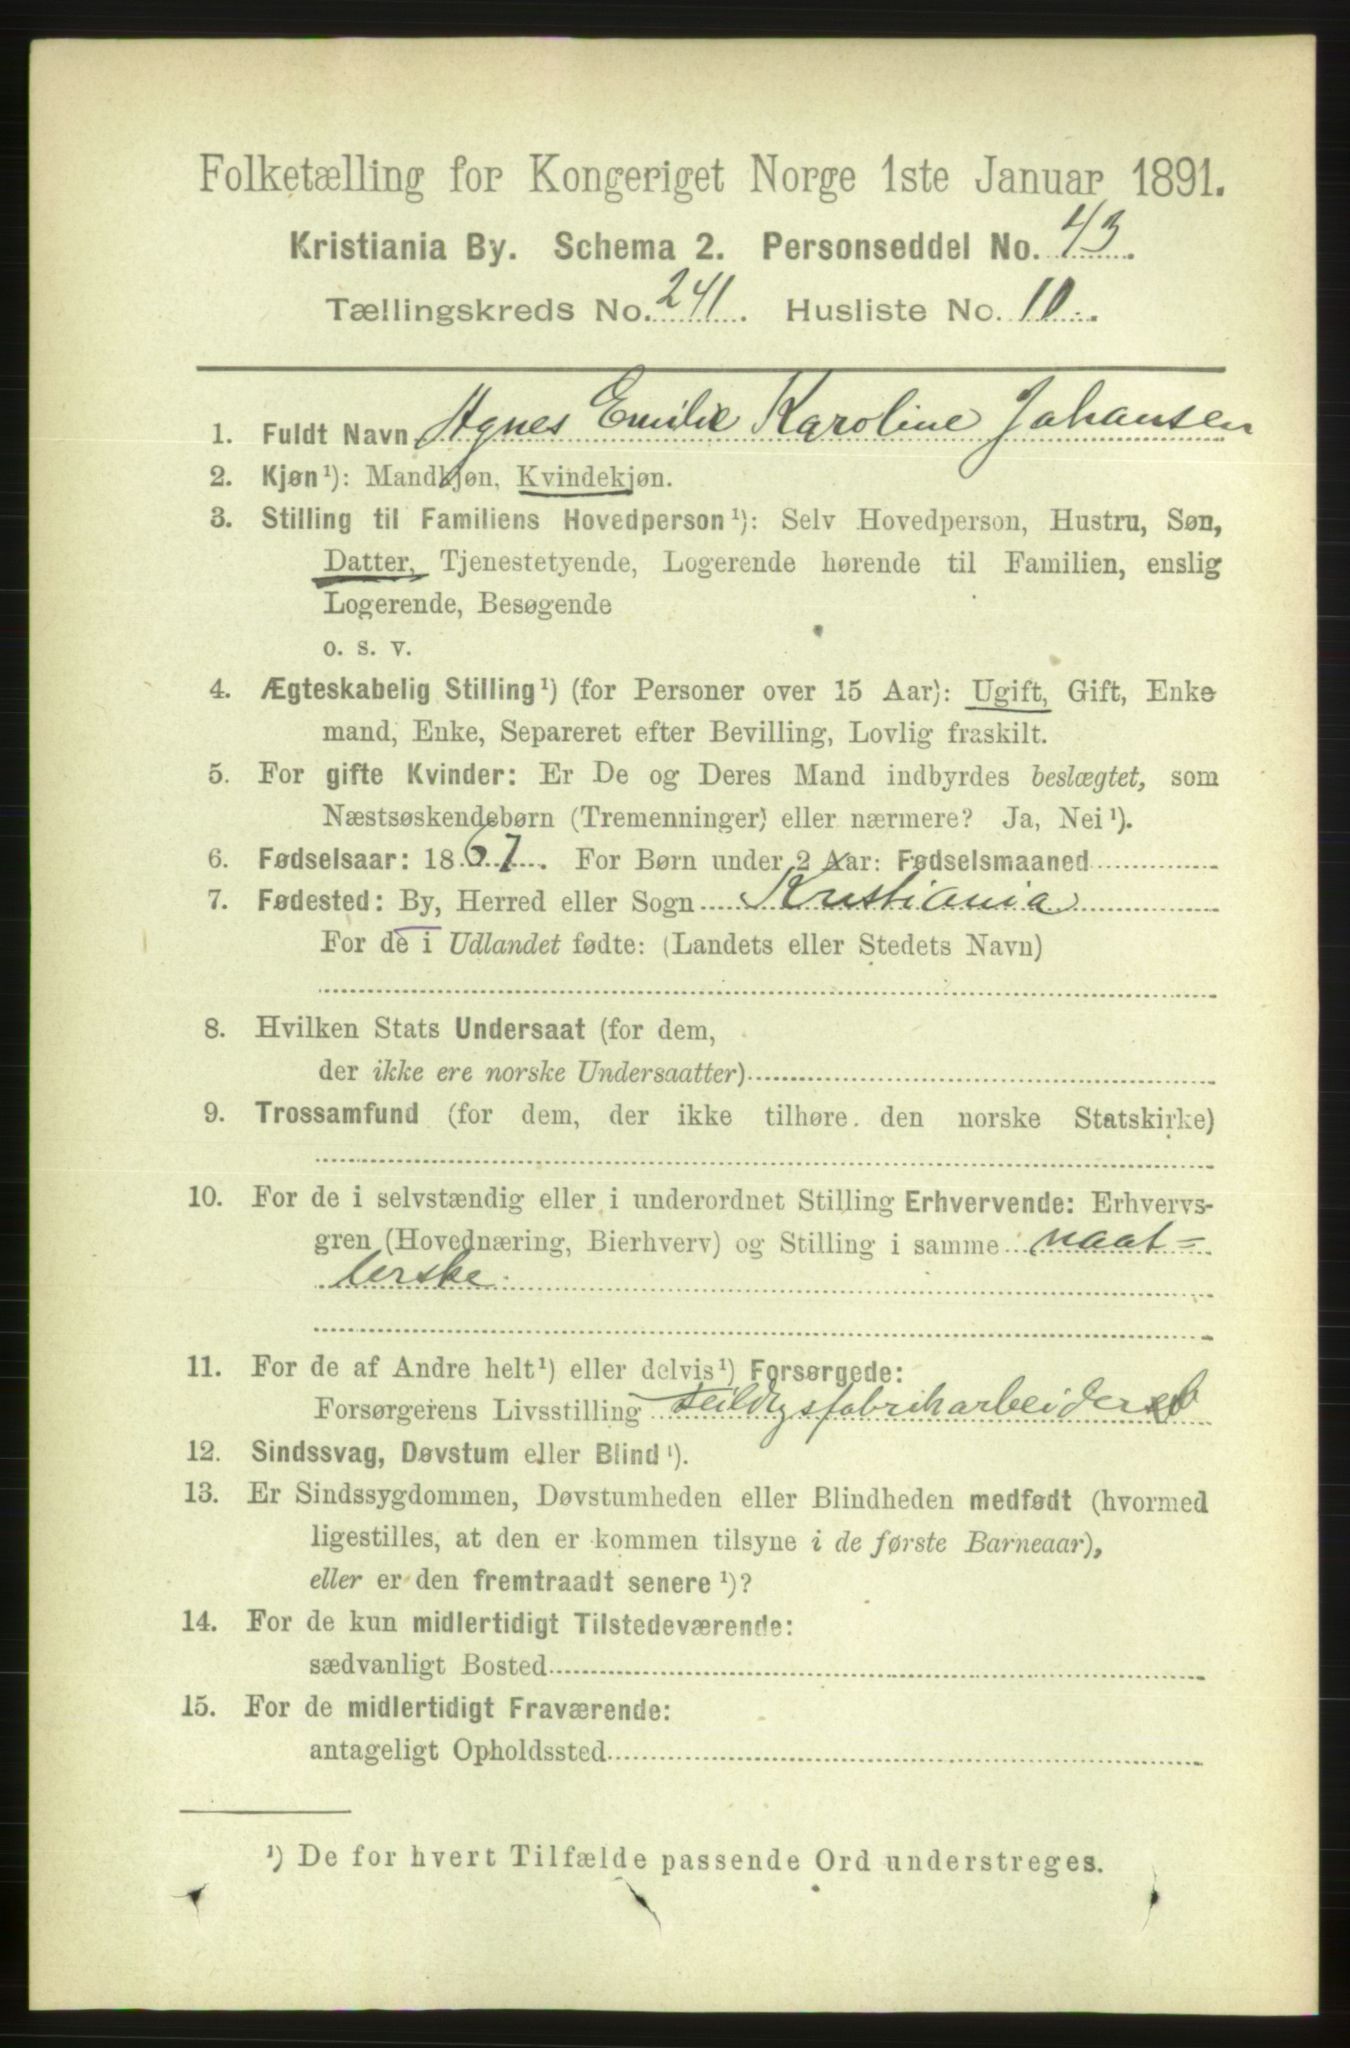 Folketælling for Kongeriget Norge 1ste Januar 1891.
Kristiania By. Schema 2. Personseddel No. 43.
Tællingskreds No. 241. Husliste No. 10.
1. Fuldt Navn Agnes Emilie Karoline Johansen
2. Kjøn¹): Mandkjøn, Kvindekjøn.
3. Stilling til Familiens Hovedperson¹): Selv Hovedperson, Hustru, Søn,
Datter, Tjenestetyende, Logerende hørende til Familien, enslig
Logerende, Besøgende
o. s. v.
4. Ægteskabelig Stilling¹) (for Personer over 15 Aar): Ugift, Gift, Enke
mand, Enke, Separeret efter Bevilling, Lovlig fraskilt.
5. For gifte Kvinder: Er De og Deres Mand indbyrdes beslægtet, som
Næstsøskendebørn (Tremenninger) eller nærmere? Ja, Nei¹).
6. Fødselsaar: 1867. For Børn under 2 Aar: Fødselsmaaned
7. Fødested: By, Herred eller Sogn Kristiania
For de i Udlandet fødte: (Landets eller Stedets Navn)
8. Hvilken Stats Undersaat (for dem,
der ikke ere norske Undersaatter)
9. Trossamfund (for dem, der ikke tilhøre den norske Statskirke)
10. For de i selvstændig eller i underordnet Stilling Erhvervende: Erhvervs-
gren (Hovednæring, Bierhverv) og Stilling i samme naat=
lerske.
11. For de af Andre helt¹) eller delvis¹) Forsørgede:
Forsørgerens Livsstilling
12. Sindssvag, Døvstum eller Blind¹).
13. Er Sindssygdommen, Døvstumheden eller Blindheden medfødt (hvormed
ligestilles, at den er kommen tilsyne i de første Barneaar),
eller er den fremtraadt senere¹)?
14. For de kun midlertidigt Tilstedeværende:
sædvanligt Bosted
15. For de midlertidigt Fraværende:
antageligt Opholdssted
¹) De for hvert Tilfælde passende Ord understreges.